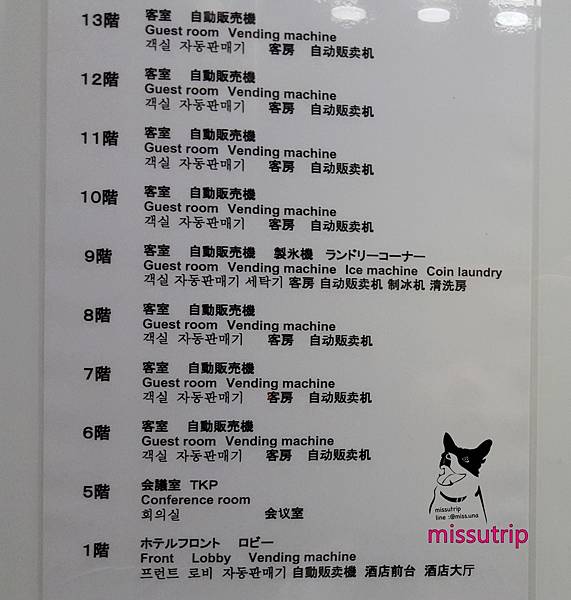 13階 客室 自動販売機
Guest room Vending machine
객실 자동판매기 客房 自动贩卖机
12階 客室 自動販売機
Guest room Vending machine
객실 자동판매기 客房 自动贩卖机
11階 客室 自動販売機
Guest room Vending machine
객실 자동판매기 客房 自动贩卖机
10階 客室 自動販売機
Guest room Vending machine
객실 자동판매기 客房 自动贩卖机
9階 客室 自動販売機 製氷機 ランドリーコーナー
Guest room Vending machine Ice machine Coin laundry
객실 자동판매기 세탁기 客房 自动贩卖机 制冰机 清洗房
8階 客室 自動販売機
Guest room Vending machine
객실 자동판매기 客房 自动贩卖机
7階 客室 自動販売機
Guest room Vending machine
객실 자동판매기 客房 自动贩卖机
6階 客室 自動販売機
Guest room Vending machine
객실 자동판매기 客房 自动贩卖机
5階 会議室 TKP
Conference room
회의실 会议室
1階 ホテルフロント ロビー
Front Lobby Vending machine
프런트 로비 자동판매기 自動販売機 酒店前台 酒店大厅
missutrip
line :@miss.una
missutrip